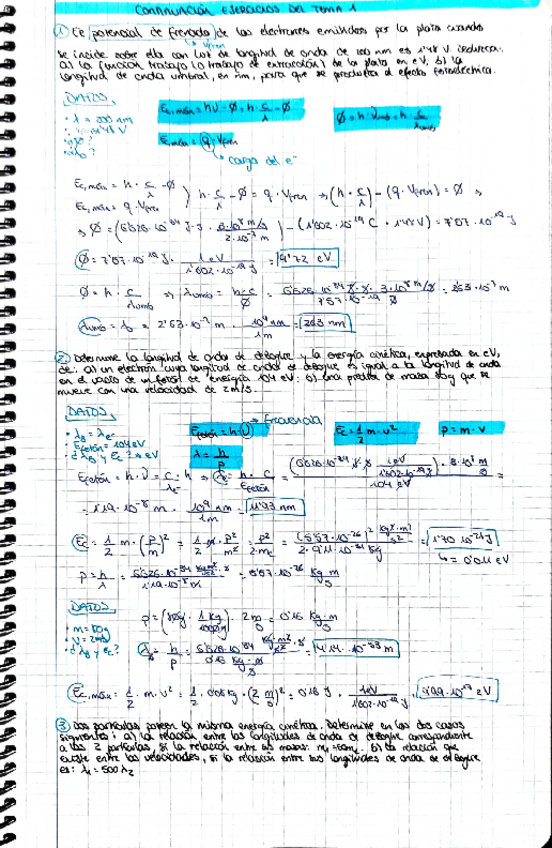 CONTINUACIÓN EJERCICIOS DEL TEMA 1
① El potencial de frenado de los electrones emitidos por la plata cuando
se incide sobre ella con luz de longitud de onda de 200 nm es 1'48 V. Deduzca:
a) La función trabajo (o trabajo de extracción) de la plata en eV, b) La
longitud de onda umbral, en nm, para que se produzca el efecto fotoeléctrico.
DATOS
· λ = 200 nm
Ec,máx = hν - Ø = h · c/λ - Ø
Ø = h · νumb = h · c/λumb
Ec,máx = q · Vfren
carga del e⁻
Ec,máx = h · c/λ - Ø
Ec,máx = q · Vfren
h · c/λ - Ø = q · Vfren → (h · c/λ) - (q · Vfren) = Ø →
→ Ø = (6'626 · 10⁻³⁴ J·s · 3·10⁸ m/s / 2·10⁻⁷ m) - (1'602 · 10⁻¹⁹ C · 1'48 V) = 7'57 · 10⁻¹⁹ J
Ø = 7'57 · 10⁻¹⁹ J · 1eV / 1'602·10⁻¹⁹ J = 4'72 eV
Ø = h · c/λumb ⇒ λumb = h·c/Ø = 6'626 · 10⁻³⁴ J·s · 3·10⁸ m/s / 7'57 · 10⁻¹⁹ J = 2'63·10⁻⁷ m
λumb = λ₀ = 2'63 · 10⁻⁷ m · 10⁹ nm / 1m = 263 nm
② Determine la longitud de onda de deBroglie y la energía cinética, expresada en eV,
de: a) un electrón cuya longitud de onda de deBroglie es igual a la longitud de onda
en el vacío de un fotón de energía 104 eV; b) una piedra de masa 80g que se
mueve con una velocidad de 2m/s.
DATOS
· λe = λe⁻
Efotón = 104 eV
Efotón = h·ν
Frecuencia
Ec = 1/2 m · v²
p = m · v
λ = h/p
Efotón = h · ν = c · h / λe
= 1'19 · 10⁻⁸ m · 10⁹ nm / 1m = 11'93 nm
Ec = 1/2 · m · (p/m)² = 1/2 · m · p²/m² = p²/2·me
= 1'70 · 10⁻²¹ J
= 0'011 eV
DATOS
· m = 80g
· v = 2m/s
p = (80g · 1 kg / 1000g) · 2m/s = 0'16 kg·m/s
= 4'14 · 10⁻³³ m
Ec,máx = 1/2 · m · v² = 1/2 · 0'08 kg · (2 m/s)² = 0'16 J · 1eV / 1'602·10⁻¹⁹ J
③ Dos partículas poseen la misma energía cinética. Determine en los dos casos
siguientes: a) La relación entre las longitudes de onda de deBroglie correspondiente
a las 2 partículas, si la relación entre sus masas: m₁=50m₂. b) La relación que
existe entre las velocidades, si la relación entre sus longitudes de onda de deBroglie
es: λ₁ = 500 λ₂